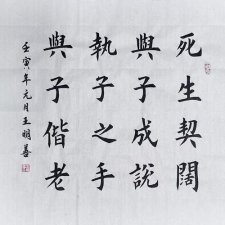 死生契闊
與子成說
執子之手
與子偕老
壬寅年元月王明善